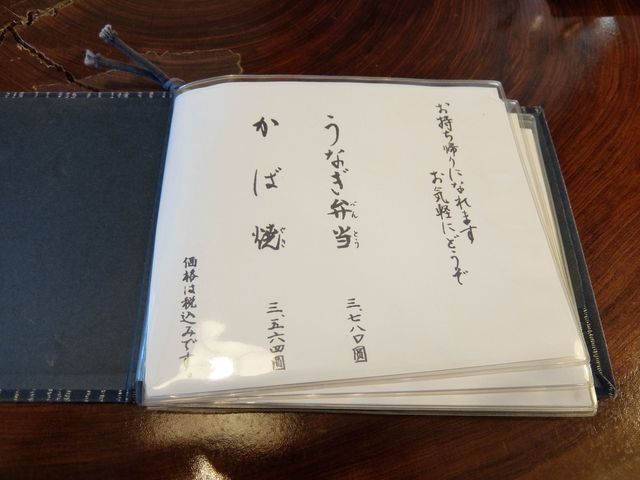 お持ち帰りになれます
お気軽にどうぞ
うなぎ弁当
べんとう
三、七八〇圓
かば焼
やき
三、五六四圓
価格は税込みです